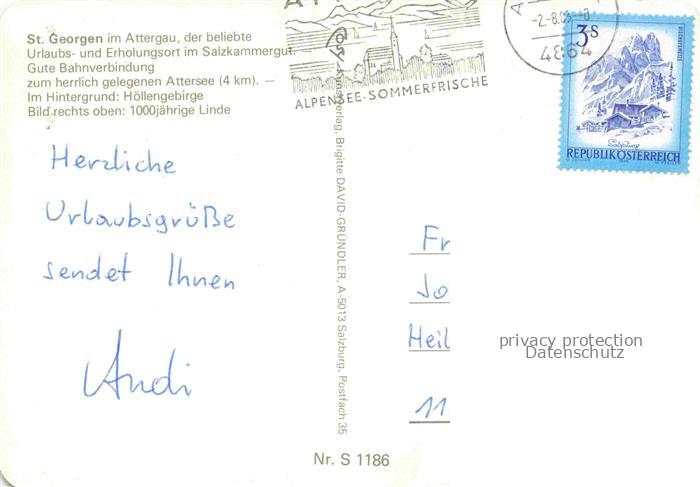 St. Georgen im Attergau, der beliebte
Urlaubs- und Erholungsort im Salzkammergut.
Gute Bahnverbindung
zum herrlich gelegenen Attersee (4 km). —
Im Hintergrund: Höllengebirge
Bild rechts oben: 1000jährige Linde
Herzliche
Urlaubsgrüße
sendet Ihnen
Andi
ALPENSEE-SOMMERFRISCHE
Brigitte DAVID-GRÜNDLER, A-5013 Salzburg, Postfach 35
4864
3 S
REPUBLIK ÖSTERREICH
Fr
Jo
Heil
11
privacy protection
Datenschutz
Nr. S 1186